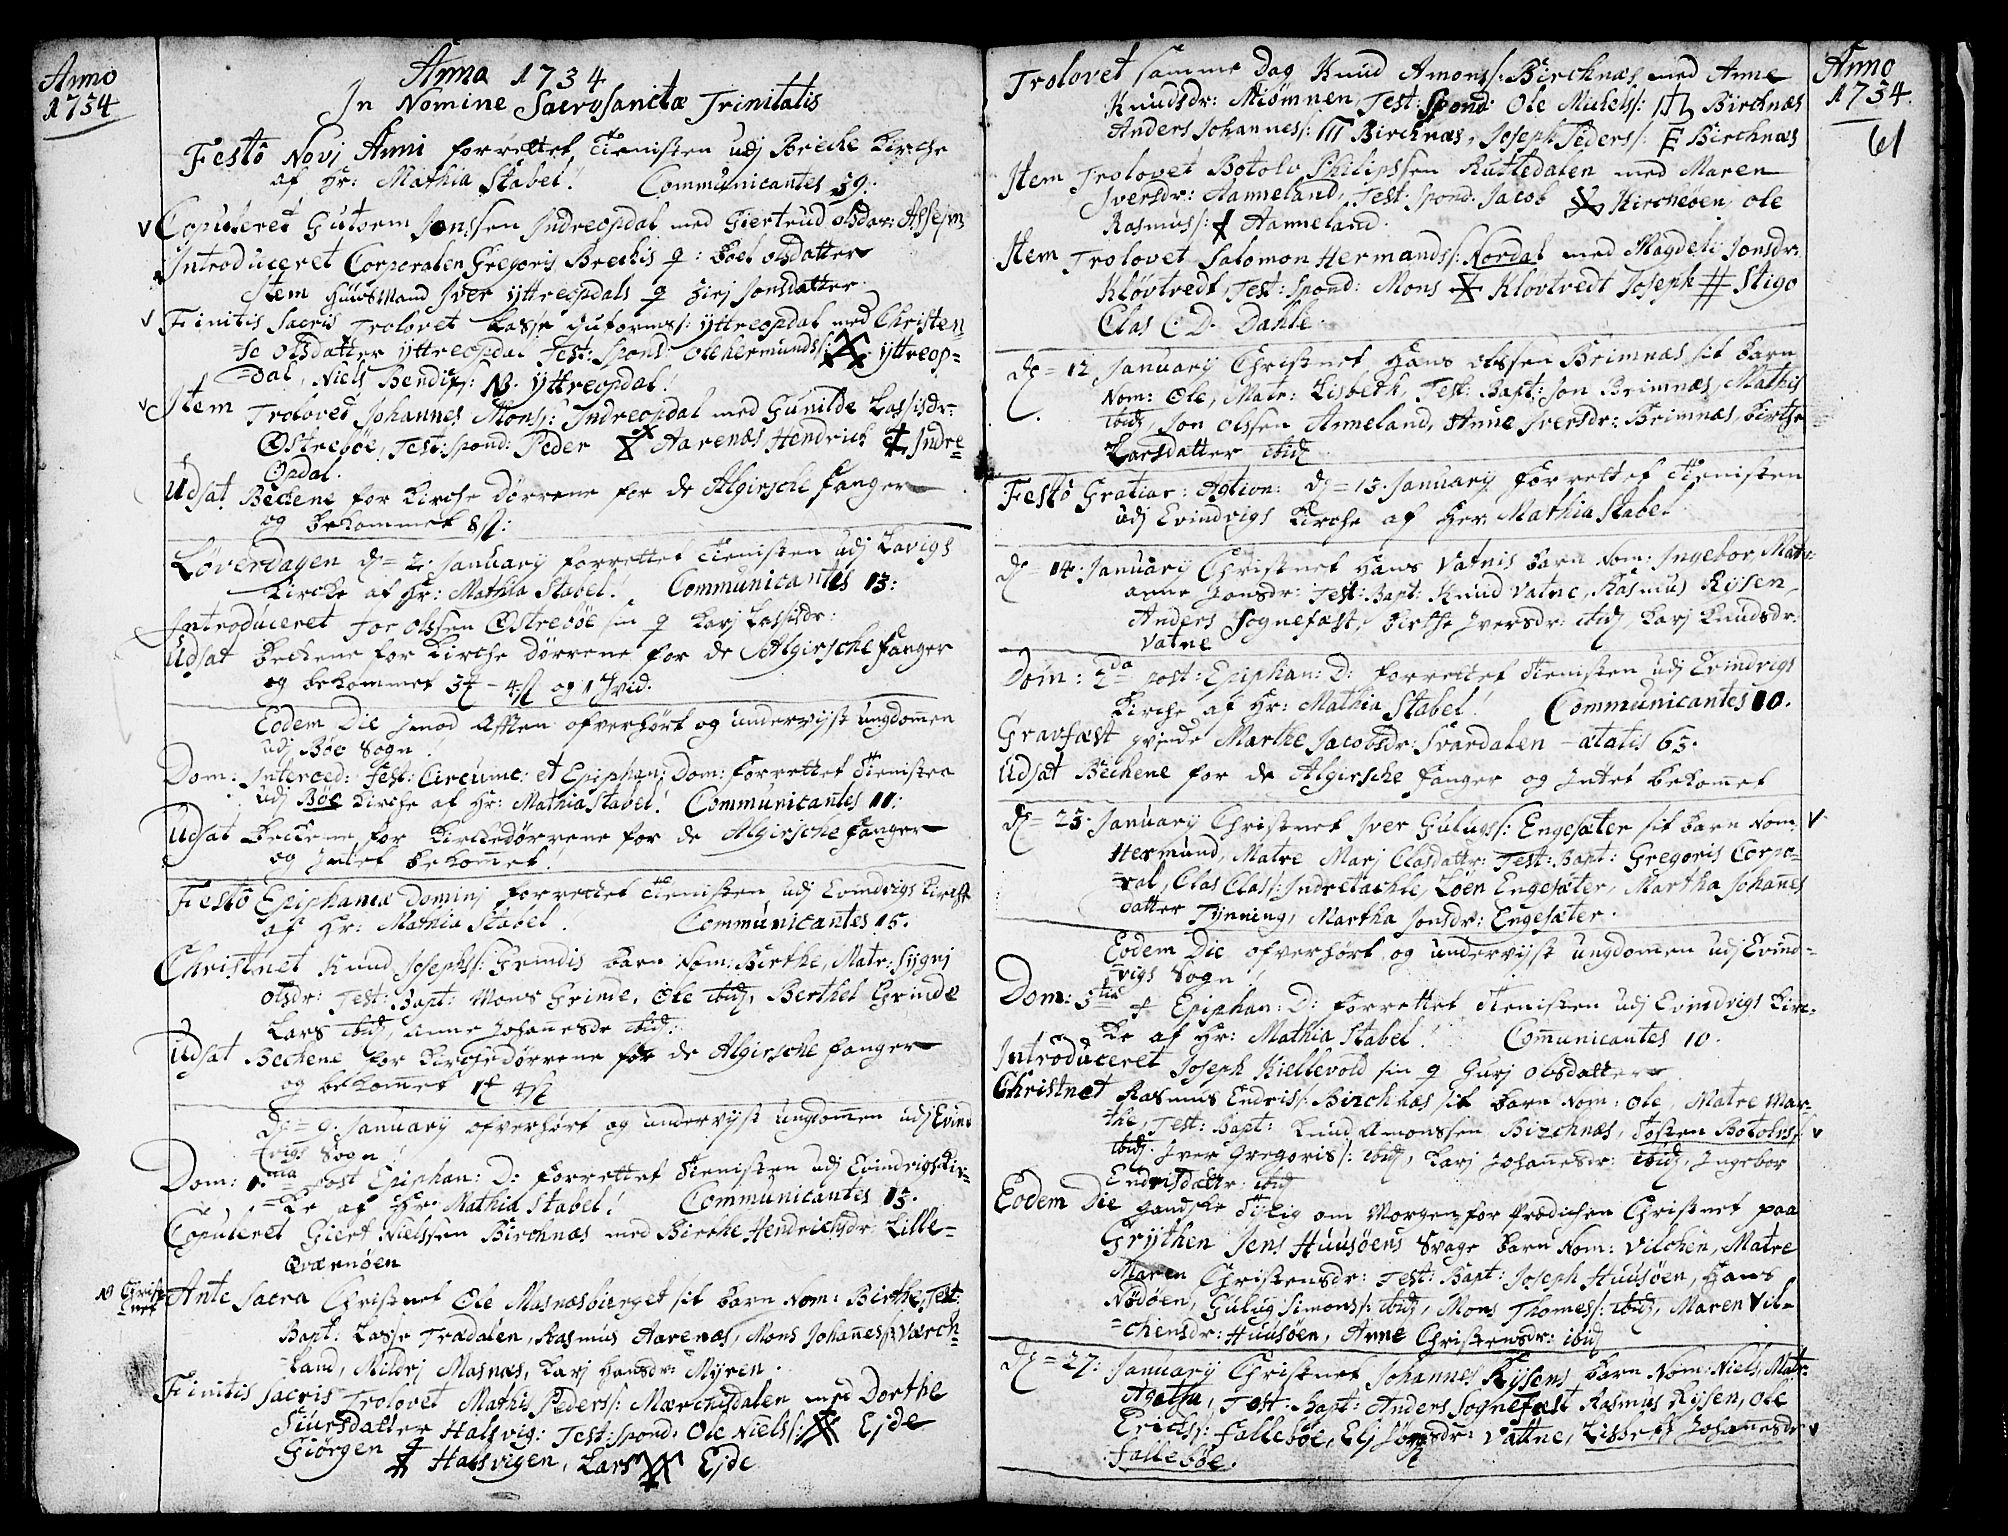 Anno
1734
Anno 1734
In Nomine Sacrosanctæ Trinitatis
Festo Novj Anni forrettet Tienisten udj Breche Kirche
af Hr: Mathia Stabel! Communicantes 59:
V Copuleret Gutorm Jonssen Indreopdal med Giertrud olsdr:
Introduceret Corporalen Gregoris Brechis q: Boel olsdatter
Item Huusmand Iver Yttreopdals q Sirj Jonsdatter.
V Finitis Sacris Trolovet Lasse Gutorms/: Yttreopdal med Christen-
=se olsdatter Yttreopdal Test: Spond: Ole hermunds/: Yttreop=
=dal, Niels Bendix/: Yttreopdal!
V Item Trolovet Johannes Mons/: Indreopdal med Gunilde Lassisdr:
Østrebøe, Test: Spond: Peder Aarenæs Hendrich Indre=
Opdal.
Udsat Beckene for Kirche dørrene for de Algirsche fanger
og bekommet 8 ß:
Løverdagen d = 2. January forrettet Tienisten udj Lavigs
Kircke af Hr: Mathia Stabel. Communicantes 13:
Introduceret Jor olssen Østrebøe sin q Karj Lassisdr:
Udsat Beckene for Kirche dørrene for de Algirsche fanger
og bekommet 3 - 4 ß og 1 hvid.
Eodem Die imod Afften ofverhørt og undervijst ungdommen
udj Bøe Sogn!
Dom: Interced: Fest: Circumc: et Epiphan: Dom: forrettet Tienisten
udj Bøe Kirche af Hr: Mathia Stabel! Communicantes 11:
Udsat Beckene for Kirckedørrene for de Algirsche fanger
og Intet bekommet!
Festo Epiphaniæ Dominj forrettet Tienisten udj Evindvigs Kirche
af Hr: Mathia Stabel! Communicantes 15.
Christnet Knud Josephs/: Grindis barn Nom: Birthe, Matr: Sygnj
olsdr: Test: Bapt: Mons Grinde, Ole ibid, Berthel Grinde
Lars ibid, Anne Johanesdr ibid.
Udsat Bechene for Kirchedørrene for de Algirsche fanger
og bekommet 1 4 ß
d = 9. January ofverhørt og undervijst ungdommen udj Evind
=vigs Sogn!
Dom: 1.ma post Epiphan: D: forrettet Tienisten udj Evindvigs Kir-
=ke af Hr: Mathia Stabel! Communicantes 13.
Copuleret Giert Nielssen Birchnæs med Birthe Hendrichsdr Lille=
Qværnøen
N Christ-
net
Ante Sacra Christnet Ole Masnæsbierget sit barn Nom: Birthe, Test:
Bapt: Lasse Trædalen, Rasmus Aarenæs, Mons Johanes/: Værch=
=land, Mildrj Masnæs, Karj Hansdr: Myren.
Finitis Sacris Trolovet Mathis Peders/: Mærchisdalen med Dorthe
Siursdatter Halsvig: Test: Spond: Ole Niels/: Ejde
Giørgen Halsvigen, Lars Ejde.
Anno
1734.
61
Trolovet samme Dag Knud Amons/: Birchnæs med Anne
Knudsdr: Miømnen, Test: Spond: Ole Michels/: Birchnæs
Anders Johannes/: Birchnæs, Joseph Peders/: Birchnæs
Item Trolovet Botolv Philipssen Rutledalen med Maren
Iversdr: Hanneland, Test: Spond: Jacob Kircheøen, ole
Rasmus/: Hanneland.
Item Trolovet Salomon Hermands/: Nordal med Magdeli Jonsdr:
Kløvtvedt, Test: Spond: Mons Kløvtvedt Joseph Stigo
Clas C. D. Dahle.
d = 12 January Christnet Hans olssen Brimnæs sit barn
Nom: Ole, Matr: Lisbeth, Test: Bapt: Jon Brimnæs, Mathis
ibid, Jon olssen Anneland, Anne Iversdr: Brimnæs, Birthe
Larsdatter ibid
Festo Gratiar: Action: d = 13. January forrettet Tienisten
udj Evindvigs Kirche af Her: Mathia Stabel.
d = 14. January Christnet Hans Vatnis barn Nom: Ingebor, Matr:
anne Hansdr: Test: Bapt: Knud Vatne, Rasmus Rysen,
Anders Sognefæst, Birthe Iversdr: ibid, Karj Knudsdr:
Vatne
Dom: 2da post: Epiphan: D: forrettet Tienisten udj Evindvigs
Kirche af Hr: Mathia Stabel! Communicantes 10.
Gravfæst qvinde Marthe Jacobsdr: Svardalen - ætatis 63.
Udsat Bechene for de Algirsche fanger og Intet bekommet
d = 23. January Christnet Iver Gulugs/: Engesæter sit barn Nom: V
Hermund, Matre Marj Clasdattr: Test: Bapt: Gregoris Corpo=
=ral, Clas Clas/: Indretachle, Løen Engesæter, Martha Johanes
datter Tynning, Martha Jonsdr: Engesæter.
Eodem Die ofverhørt og undervijst ungdommen udj Evind-
=vigs Sogn!
Dom: 3tia Epiphan: D: forrettet Tienisten udj Evindvigs Kirc-
ke af Hr: Mathia Stabel! Comunicantes 10.
Introduceret Joseph Kiellevold sin q Gurj olsdatter
Christnet Rasmus Endris/: Birchnæs sit barn Nom: Ole, Matre Mar-
=the, Test: Bapt: Knud Amonssen Birchnæs, Tosten Botolvs/: V
ibid. Iver Gregoris/: ibid, Karj Johanesdr: ibid, Ingebor
Endrisdattr: ibid
Eodem Die gandske Tilig om Morgen for Prædichen Christnet paa
Grythen Jens Huusøens Svage barn Nom: Vilchen, Matre
Maren Christensdr: Test: Bapt: Joseph Huusøen, Hans
Nodøen, Gulug Simons/: ibid, Mons Thomes/: ibid, Maren Vil=
=chensdr: Huusøen, Anne Christensdr: ibid
d = 27: January Christnet Johannes Rysens barn Nom: Niels, Matr:
Agatha, Test: Bapt: Anders Sognefæst Rasmus Rysen, Ole
Erichs/: Fallebøe, Elj dr: Vattne, Lisbeth Johanesdr V
Fallebøe.